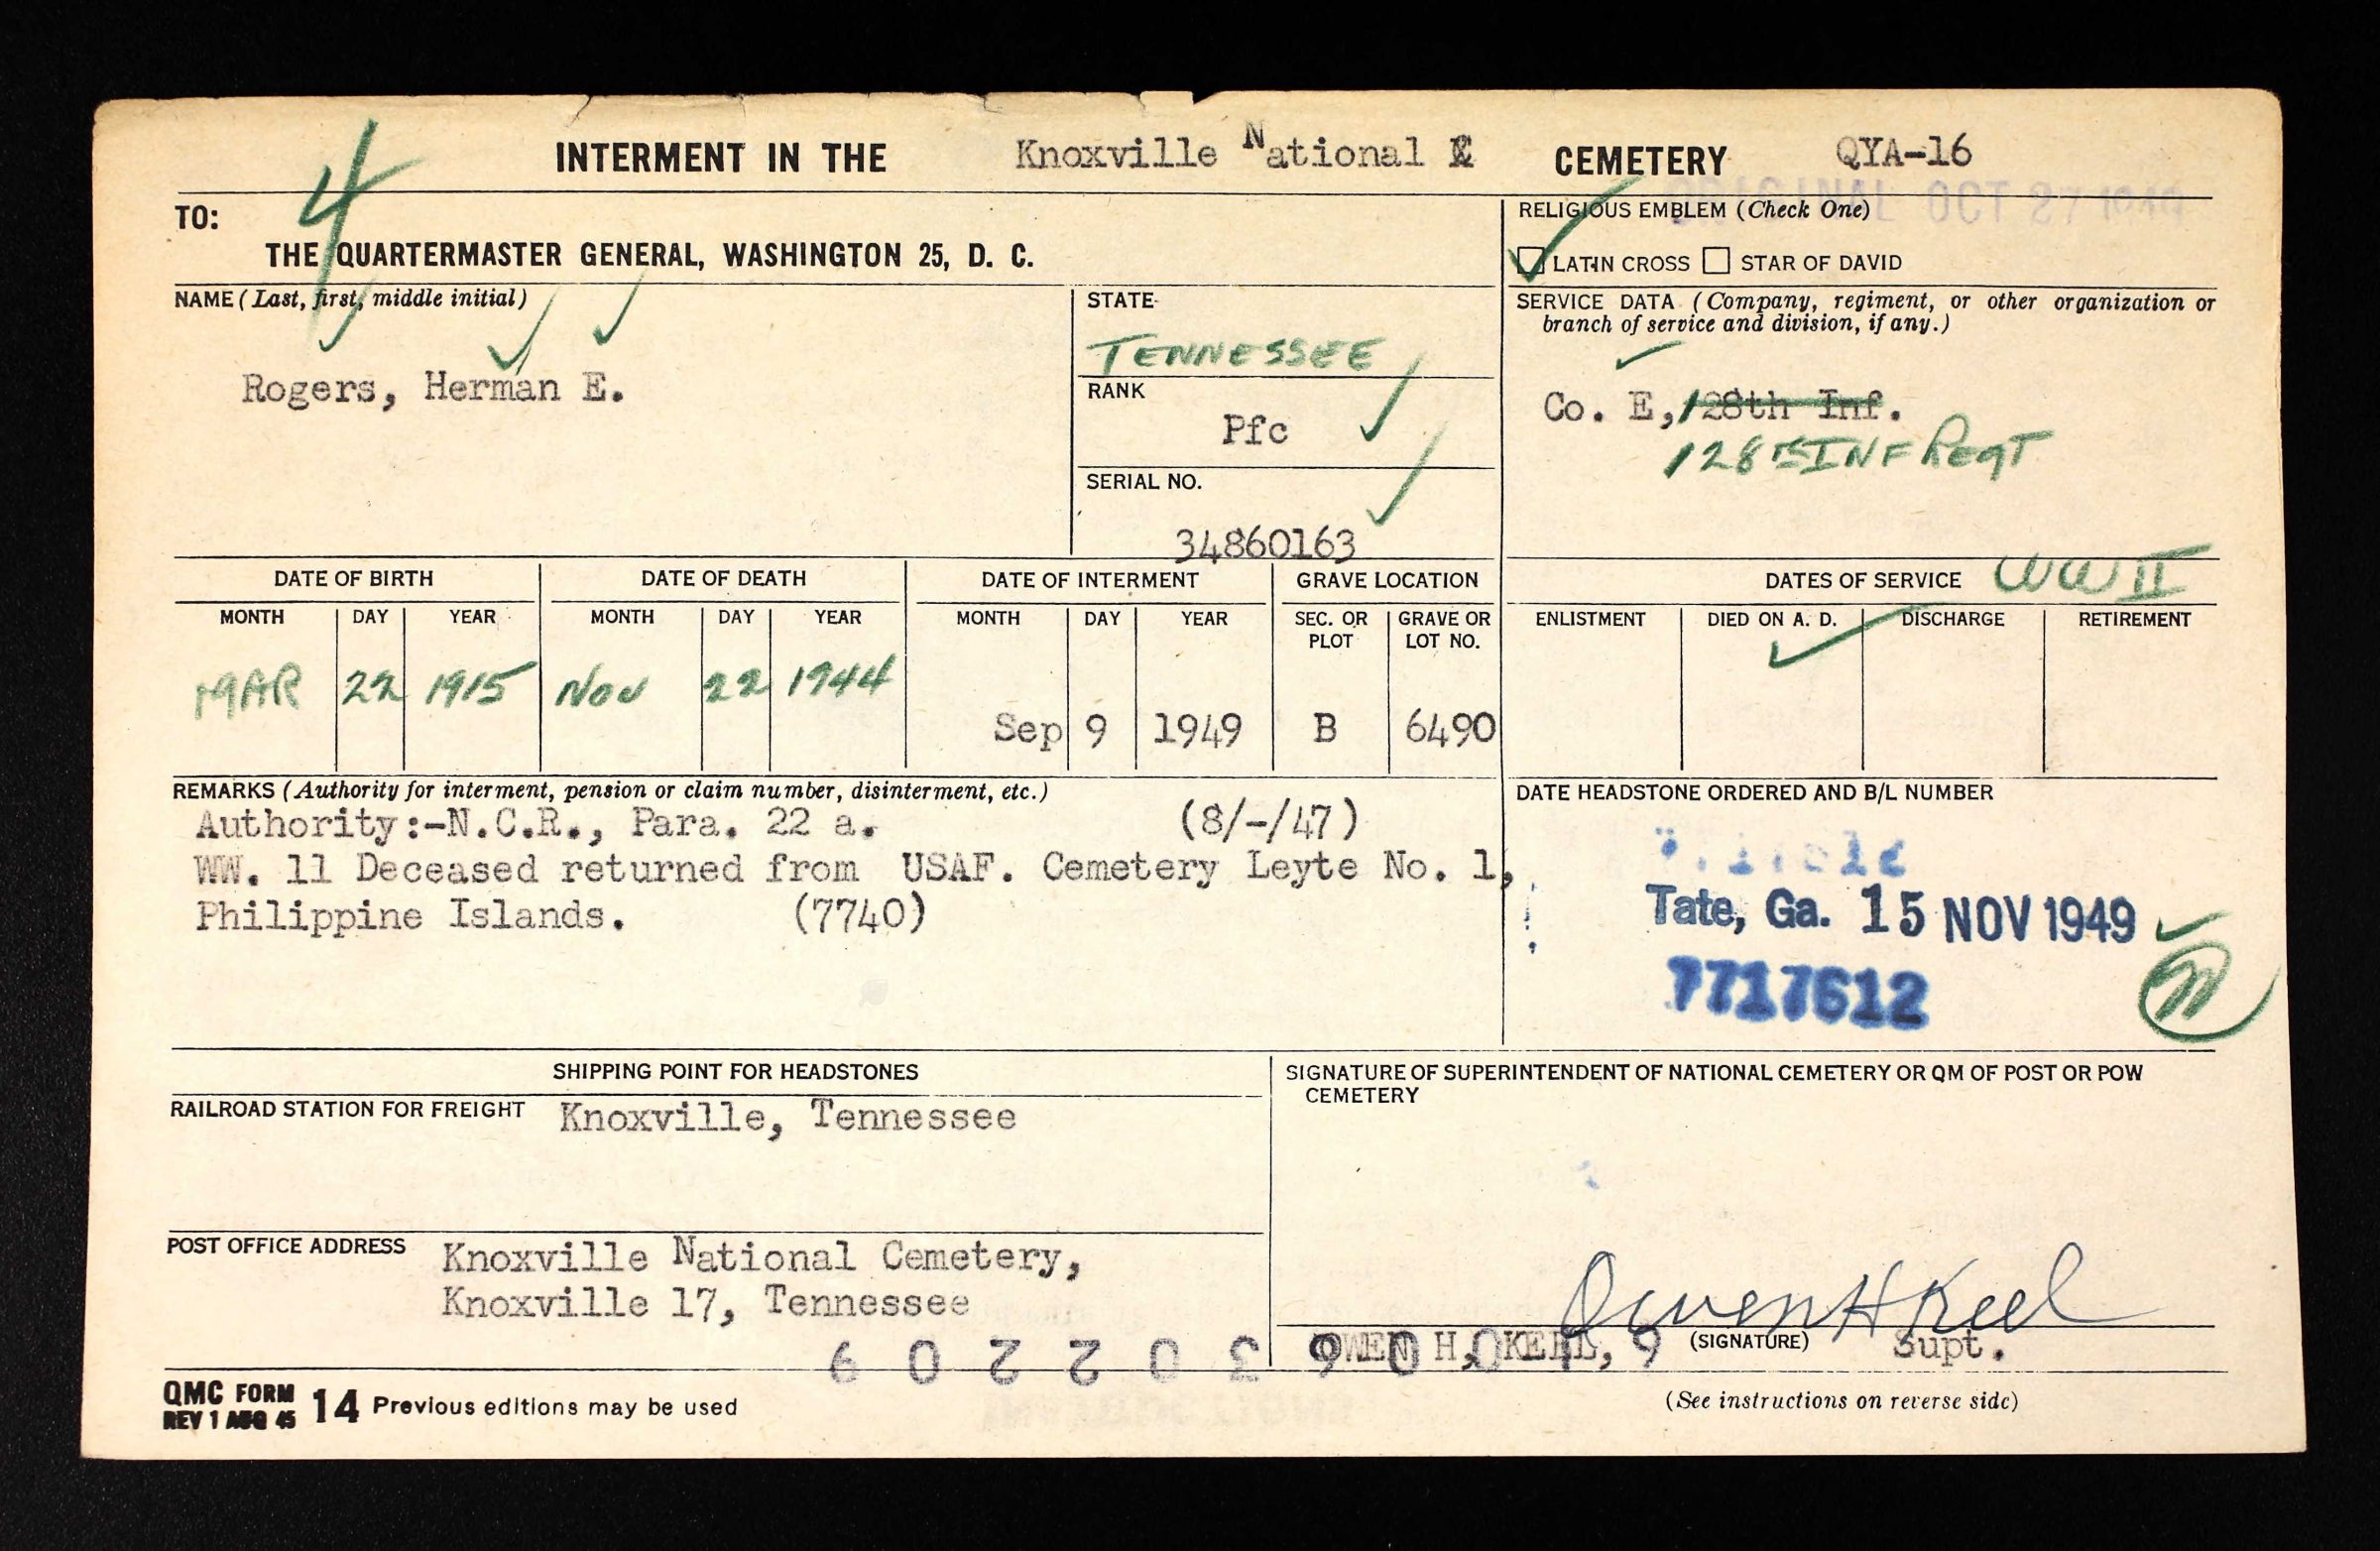 INTERMENT IN THE Knoxville National CEMETERY QYA-16
ORIGINAL OCT 27 1949
4
TO:
THE QUARTERMASTER GENERAL, WASHINGTON 25, D. C.
RELIGIOUS EMBLEM (Check One)
LATIN CROSS STAR OF DAVID
NAME (Last, first, middle initial)
Rogers, Herman E.
STATE
TENNESSEE
RANK
Pfc
SERIAL NO.
34860163
SERVICE DATA (Company, regiment, or other organization or
branch of service and division, if any.)
Co. E, 128th Inf.
128TH INF REGT
DATE OF BIRTH DATE OF DEATH DATE OF INTERMENT GRAVE LOCATION DATES OF SERVICE WW II
MONTH DAY YEAR MONTH DAY YEAR MONTH DAY YEAR SEC. OR PLOT GRAVE OR LOT NO. ENLISTMENT DIED ON A. D. DISCHARGE RETIREMENT
MAR 22 1915 NOV 22 1944
Sep 9 1949 B 6490
REMARKS (Authority for interment, pension or claim number, disinterment, etc.)
Authority:-N.C.R., Para. 22 a. (8/-/47)
WW. 11 Deceased returned from USAF. Cemetery Leyte No. 1,
Philippine Islands. (7740)
DATE HEADSTONE ORDERED AND B/L NUMBER
Tate, Ga. 15 NOV 1949
7717612
SHIPPING POINT FOR HEADSTONES
RAILROAD STATION FOR FREIGHT Knoxville, Tennessee
POST OFFICE ADDRESS Knoxville National Cemetery,
Knoxville 17, Tennessee
SIGNATURE OF SUPERINTENDENT OF NATIONAL CEMETERY OR QM OF POST OR POW
CEMETERY
Owen H Keel
OWEN H. KEEL, (SIGNATURE) Supt.
QMC FORM 14 Previous editions may be used
REV 1 AUG 45
(See instructions on reverse side)